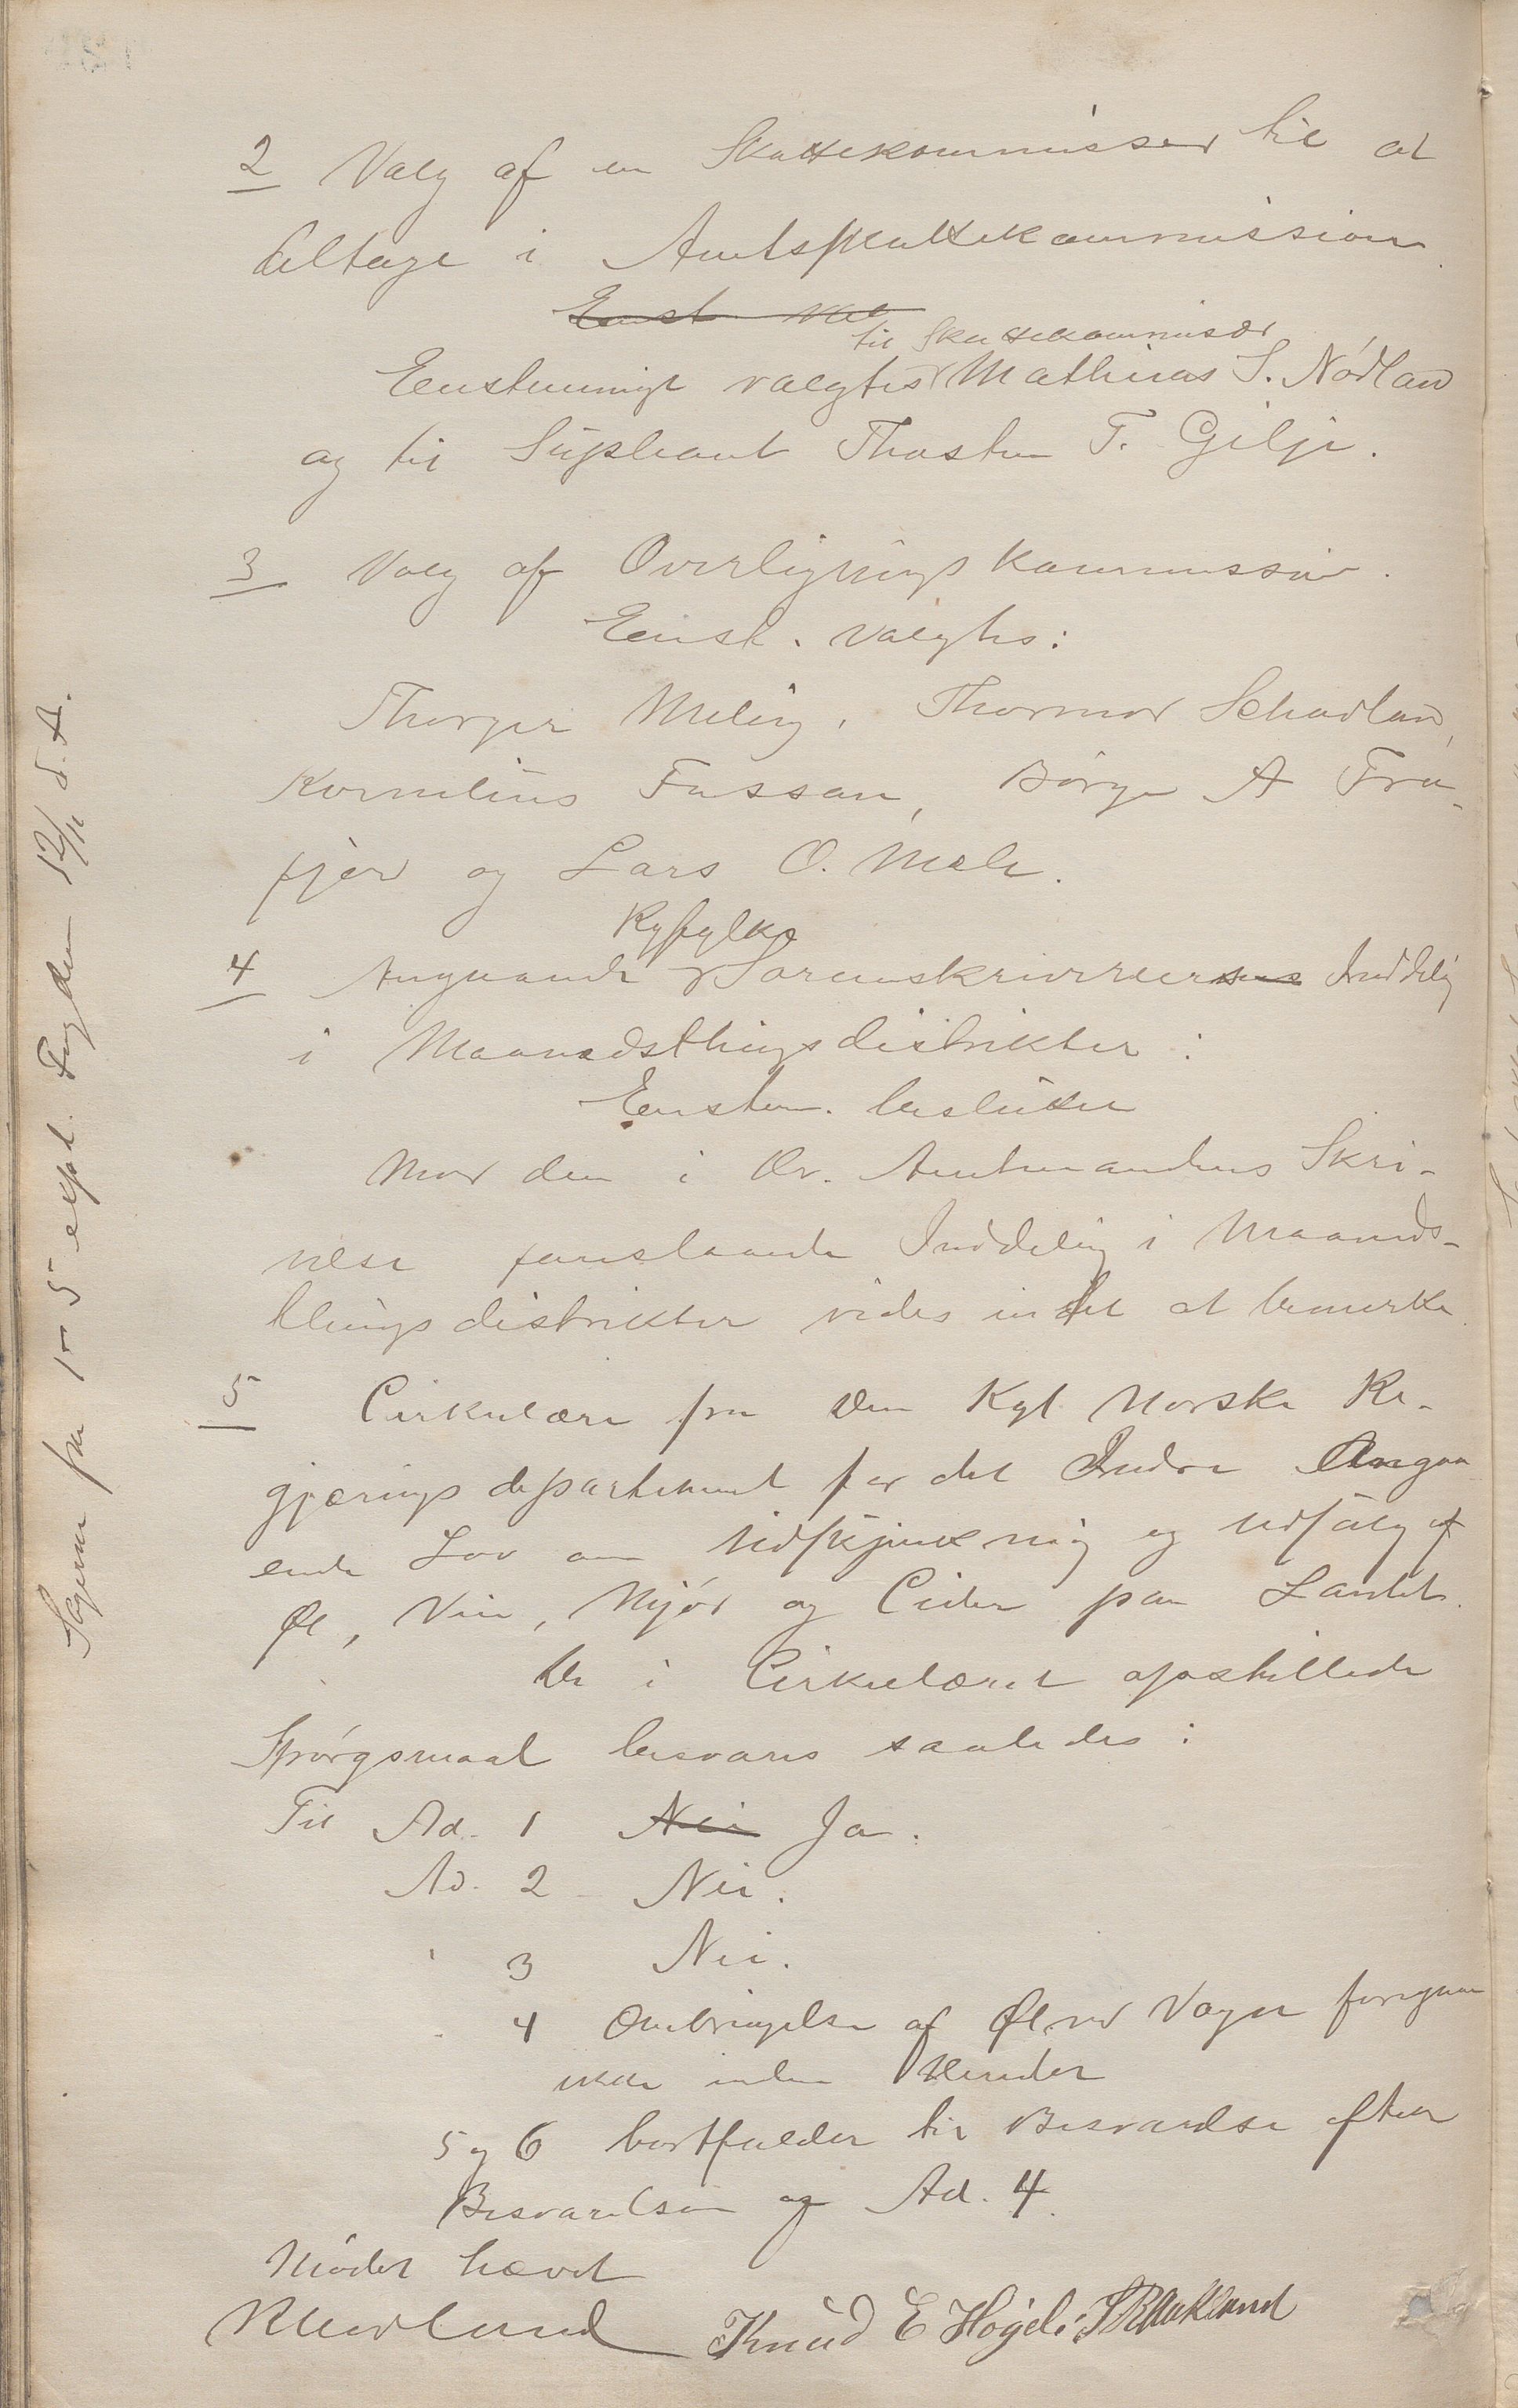 2 Valg af en Skattekommissær til at
deltage i Amtsskattekommission.
Eenst. val
til Skattekommisær
Eenstemmigt valgtes Mathias S. Nødland
og til Supleant Thosten T. Gilje.
3 Valg af Overligningskommission.
Eenst. valgtes:
Thorger Meling, Thormod Schadland,
Kornelius Fassan, Børge A Fra-
fjord og Lars O. Mæle.
Ryfylke
4 Angaaende Sorenskriveriers Inddeling
i Maanedsthingsdistrikter:
Eenstem. besluttet
Mod den i Hr. Amtmandens Skri-
velse foreslaaede Inddeling i Maaneds-
thingsdistrikter vides intet at bemærke.
5 Cirkulære fra Den Kgl Norske Re-
gjæringsdepartement for det Indre Angaa
ende Lov om Udskjænkning og Udsalg af
Øl, Vin, Mjød og Cider paa Landet.
De i Cirkulæret opstillede
Spørgsmaal besvares saaledes:
Til Ad. 1 Nei Ja.
Ad. 2 Nei.
3 Nei.
4 Ombringelse af Øl ved Vogn foregaar
ikke inden Herredet
5 og 6 bortfalder til Besvarelse efter
Besvarelsen af Ad. 4.
Mødet hævet
Knud E Høgeli S B Aukland
Sagerne fra 1-5 expd. Fogden 12/11 d. A.